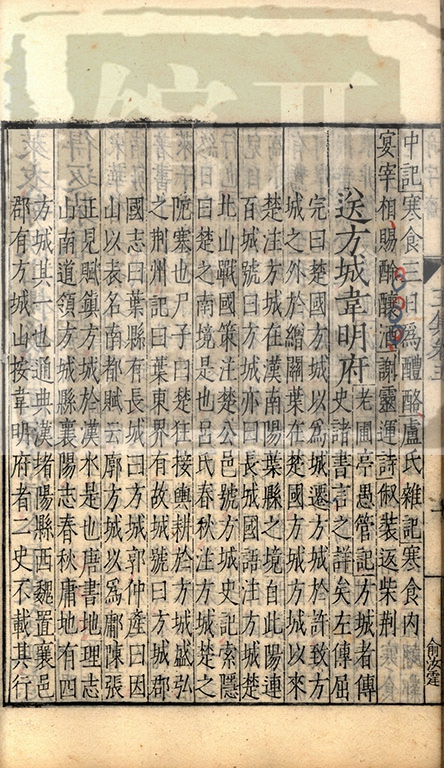 中記寒食三日爲醴酪盧氏雜記寒食內
宴宰相賜酴醿酒謝靈運詩俶裝返柴荆
送方城韋明府
老圃亭愚管記方城者傳
史諸書言之詳矣左傳屈
完曰楚國方城以爲城遷方城於許致方
城之外於繒關葉在楚國方城方城以來
楚注方城在漢南陽葉縣之境自此陽連
百城號曰方城亦曰長城國語注方城楚
北山戰國策注楚公邑號方城史記索隱
曰楚之南境是也呂氏春秋注方城楚之
阸塞也尸子曰楚狂接輿耕於方城盛弘
之荆州記曰葉東界有故城號曰方城郡
國志曰葉縣有長城曰方城郭仲產曰因
山以表名南都賦云廓方城以爲鄽陳張
正見賦方城於漢水是也唐書地理志
山南道領方城縣襄陽志春秋庸地有四
方城其一也通典漢堵陽縣西魏置襄邑
郡有方城山按韋明府者二史不載其行
俞汝霆